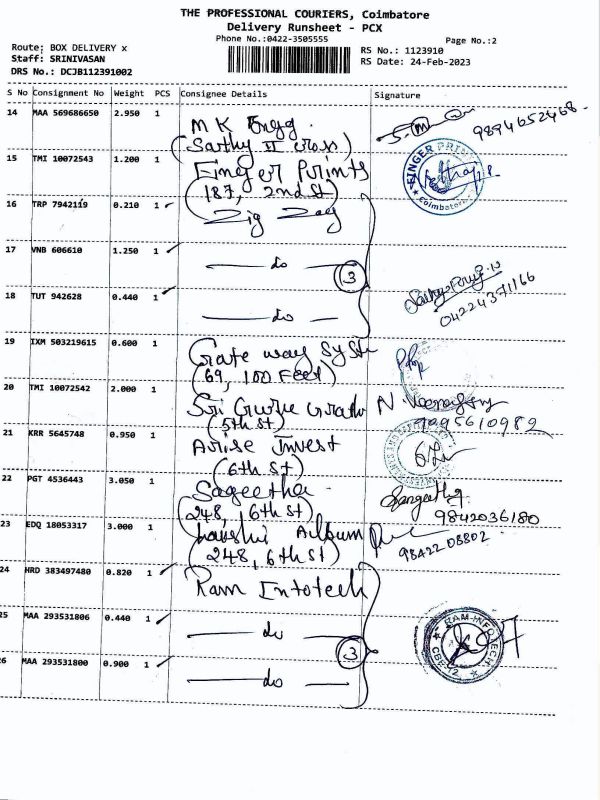 THE PROFESSIONAL COURIERS, Coimbatore
Delivery Runsheet - PCX
Phone No.:0422-3505555
Page No.:2
Route: BOX DELIVERY x
Staff: SRINIVASAN
DRS No.: DCJB112391002
RS No.: 1123910
RS Date: 24-Feb-2023
S No Consignment No Weight PCS Consignee Details Signature
14 MAA 569686650 2.950 1 M K Engg.
(Sathy II cross)
9894652468
15 TMI 10072543 1.200 1 Finger Prints
(187, 2nd st)
FINGER PRIN
Coimbatore
16 TRP 7942119 0.210 1 Zig Zag
17 VNB 606610 1.250 1 do
3
18 TUT 942628 0.440 1 do
04224371166
19 IXM 503219615 0.600 1 Gate way Syst
(69, 100 Feet)
20 TMI 10072542 2.000 1 Sri Guru
(5th st)
9095610982
21 KRR 5645748 0.950 1 Arise Invest
(6th st)
22 PGT 4536443 3.050 1 Sageetha
(248, 6th st)
Sangeetha
9842036180
23 EDQ 18053317 3.000 1 Album
(248, 6th st)
98422 08802
24 HRD 383497480 0.820 1 Ram Infotech
25 MAA 293531806 0.440 1 do
3
RAM INFOTECH
CBE-12
26 MAA 293531800 0.900 1 do